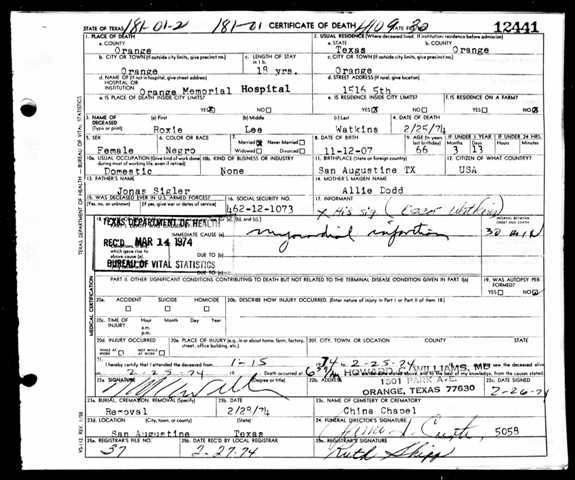 STATE OF TEXAS 181-01-2 181-01 CERTIFICATE OF DEATH STATE FILE NO. 12441
1. PLACE OF DEATH 2. USUAL RESIDENCE (Where deceased lived. If institution: residence before admission)
a. COUNTY Orange a. STATE Texas b. COUNTY Orange
b. CITY OR TOWN (If outside city limits, give precinct no.) c. LENGTH OF STAY in 1 b. c. CITY OR TOWN (If outside city limits, give precinct no.)
Orange 18 yrs. Orange
d. NAME OF (If not in hospital, give street address) HOSPITAL OR INSTITUTION d. STREET ADDRESS (If rural, give location)
Orange Memorial Hospital 1516 5th
e. IS PLACE OF DEATH INSIDE CITY LIMITS? e. IS RESIDENCE INSIDE CITY LIMITS? f. IS RESIDENCE ON A FARM?
YES NO YES NO YES NO
3. NAME OF DECEASED (Type or print) (a) First (b) Middle (c) Last 4. DATE OF DEATH
Roxie Lee Watkins 2/25/74
5. SEX 6. COLOR OR RACE 7. Married Never Married Widowed Divorced 8. DATE OF BIRTH 9. AGE (In years last birthday) IF UNDER 1 YEAR IF UNDER 24 HRS.
Female Negro 11-12-07 66 3 13
10a. USUAL OCCUPATION (Give kind of work done during most of working life, even if retired) 10b. KIND OF BUSINESS OR INDUSTRY 11. BIRTHPLACE (State or foreign country) 12. CITIZEN OF WHAT COUNTRY?
Domestic None San Augustine TX USA
13. FATHER'S NAME 14. MOTHER'S MAIDEN NAME
Jonas Sigler Allie Dodd
15. WAS DECEASED EVER IN U.S. ARMED FORCES? 16. SOCIAL SECURITY NO. 17. INFORMANT
(Yes, no, or unknown) (If yes, give war or dates of service) 462-12-1073 X His Sig
TEXAS DEPARTMENT OF HEALTH
IMMEDIATE CAUSE (a) myocardial infarction 30 min
REC'D MAR 14 1974
DUE TO (b)
BUREAU OF VITAL STATISTICS
DUE TO (c)
PART II. OTHER SIGNIFICANT CONDITIONS CONTRIBUTING TO DEATH BUT NOT RELATED TO THE TERMINAL DISEASE CONDITION GIVEN IN PART I(a) 19. WAS AUTOPSY PERFORMED?
YES NO
20a. ACCIDENT SUICIDE HOMICIDE 20b. DESCRIBE HOW INJURY OCCURRED. (Enter nature of injury in Part I or Part II of item 18.)
20c. TIME OF INJURY Hour Month Day Year
a.m.
p.m.
20d. INJURY OCCURRED 20e. PLACE OF INJURY (e.g., in or about home, farm, factory, street, office building, etc.) 20f. CITY, TOWN, OR LOCATION COUNTY STATE
WHILE AT WORK NOT WHILE AT WORK
21. I hereby certify that I attended the deceased from 1-15 74 to 2-25-74
2-25-74 Death occurred at
22a. SIGNATURE (Degree or title) 22b. ADDRESS HOWARD C. WILLIAMS, MD 22c. DATE SIGNED
1301 PARK AVE.
ORANGE, TEXAS 77630 2-26-74
23a. BURIAL, CREMATION, REMOVAL (Specify) 23b. DATE 23c. NAME OF CEMETERY OR CREMATORY
Removal 2/28/74 China Chapel
23d. LOCATION (City, town, or county) (State) 24. FUNERAL DIRECTOR'S SIGNATURE
San Augustine Texas 5058
25a. REGISTRAR'S FILE NO. 25b. DATE REC'D BY LOCAL REGISTRAR 25c. REGISTRAR'S SIGNATURE
37 2-27-74 Ruth Shipp
TEXAS DEPARTMENT OF HEALTH — BUREAU OF VITAL STATISTICS
MEDICAL CERTIFICATION